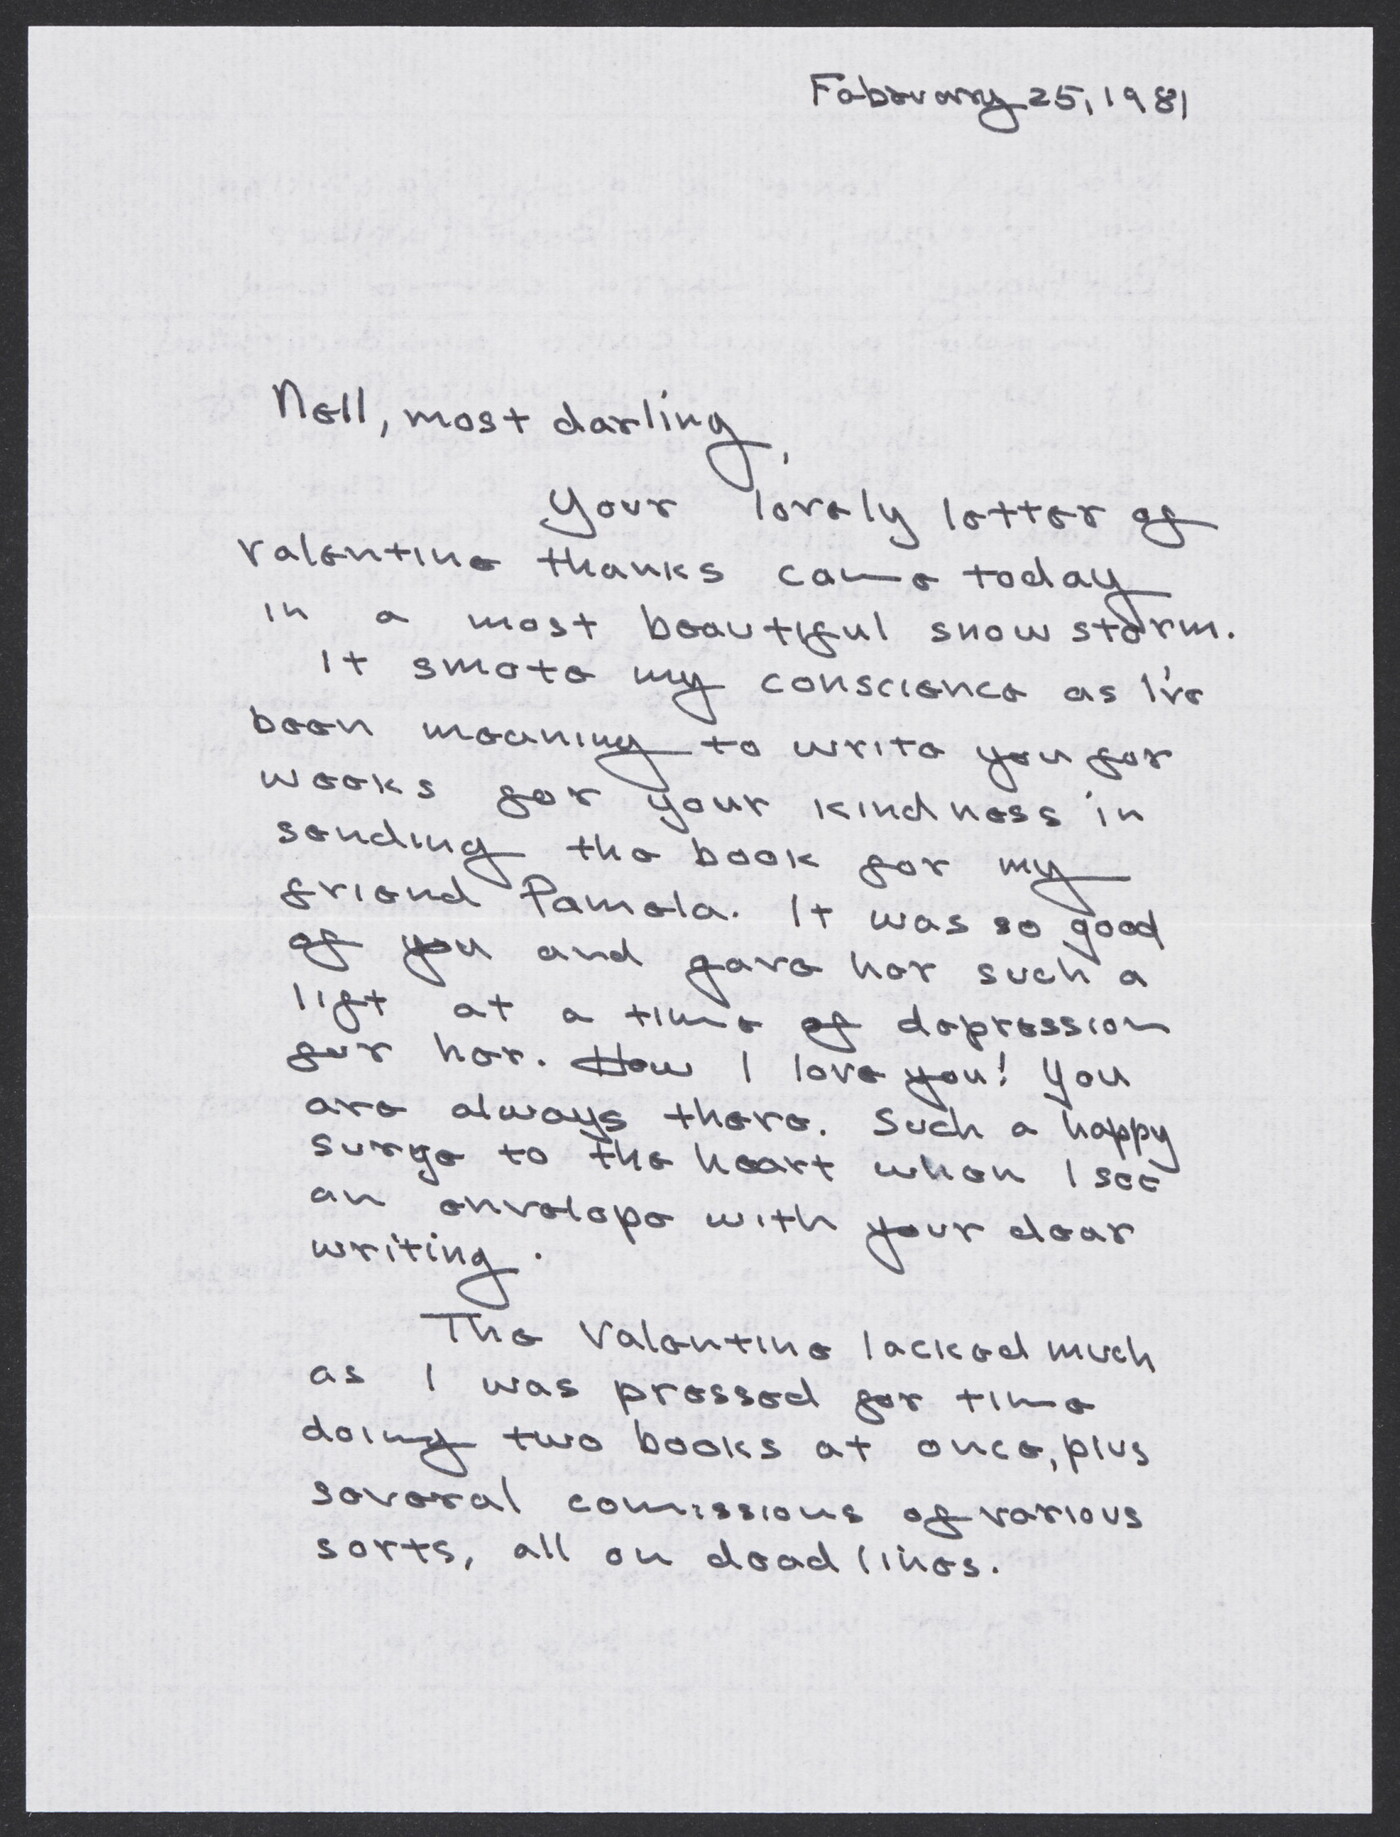 February 25, 1981
Nell, most darling,
Your lovely letter of
valentine thanks came today
in a most beautiful snow storm.
It smote my conscience as I've
been meaning to write you for
weeks for your kindness in
sending the book for my
friend Pamela. It was so good
of you and gave her such a
lift at a time of depression
for her. How I love you! You
are always there. Such a happy
surge to the heart when I see
an envelope with your dear
writing.
The Valentine lacked much
as I was pressed for time
doing two books at once, plus
several comissions of various
sorts, all on dead lines.